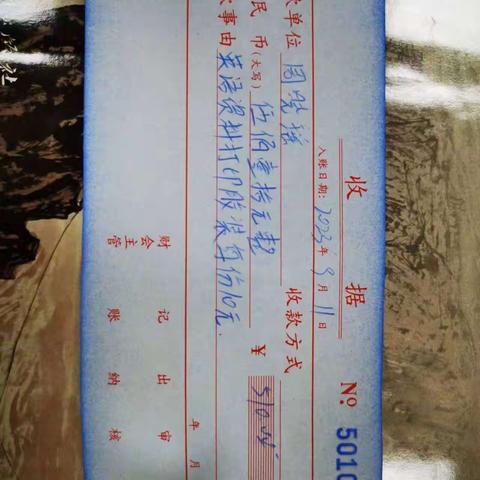 收 据 № 5010
入账日期: 2023年9月11日
单位 周晓 收款方式
民 币(大写) 伍佰壹拾元整 ¥ 510.00
事由 英语资料打印胶装每份10元.
年 月
财会主管 记账 出纳 审核
社